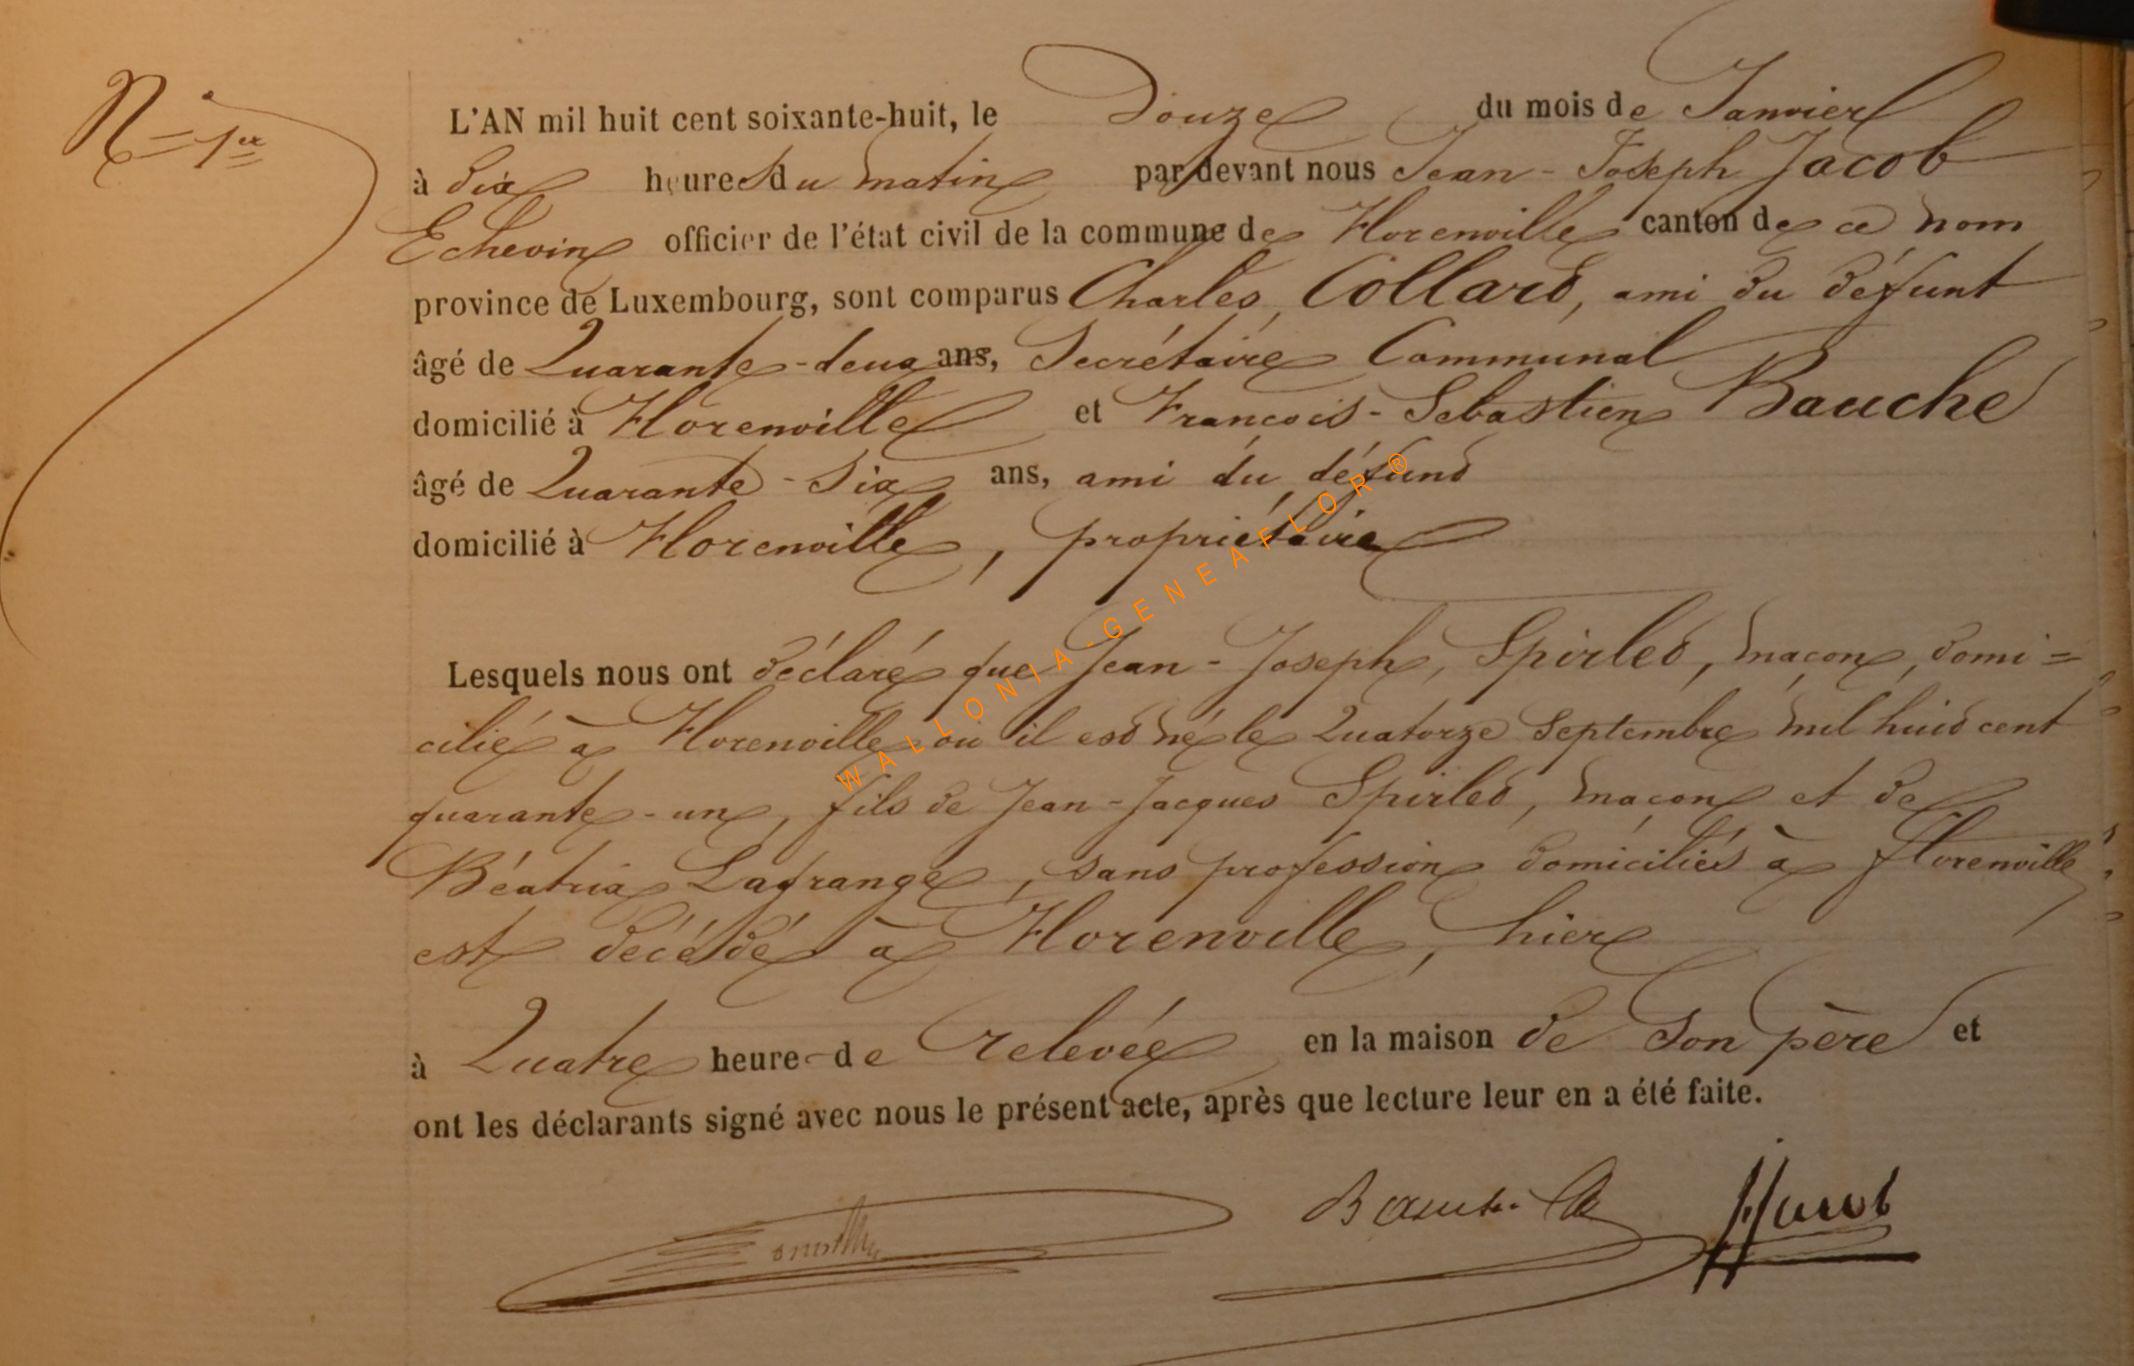 N° 1er
L'AN mil huit cent soixante-huit, le Douze du mois de Janvier
à dix heures du matin par devant nous Jean-Joseph Jacob
Echevin officier de l'état civil de la commune de Florenville canton de ce nom
province de Luxembourg, sont comparus Charles, Collard, ami du défunt
âgé de Quarante-deux ans, Secrétaire Communal
domicilié à Florenville et François-Sebastien Bauche
âgé de Quarante-Six ans, ami du défunt
domicilié à Florenville, propriétaire
Lesquels nous ont déclaré que Jean-Joseph, Spirlet, maçon, domi=
cilié à Florenville où il est né le Quatorze Septembre mil huit cent
quarante-un, fils de Jean-Jacques Spirlet, maçon et de
Béatrix Lafrange, sans profession domiciliés à Florenville
est décédé à Florenville, hier
à Quatre heure de relevée en la maison de Son père et
ont les déclarants signé avec nous le présent acte, après que lecture leur en a été faite.
JJacob
WALLONIA-GENEAFLOR®